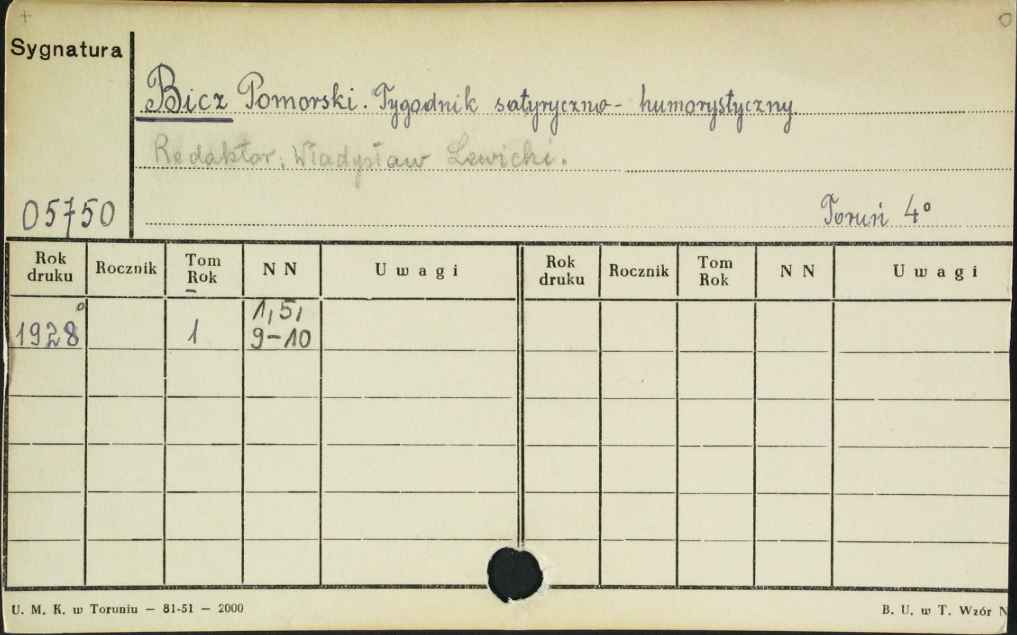 Sygnatura
Bicz Pomorski. Tygodnik satyryczno-humorystyczny
Redaktor: Władysław Lewicki.
05750
Toruń 4°
Rok druku Rocznik Tom Rok N N Uwagi Rok druku Rocznik Tom Rok N N Uwagi
1928° 1 1, 5,
9-10
U. M. K. w Toruniu — 81-51 — 2000 B. U. w T. Wzór N